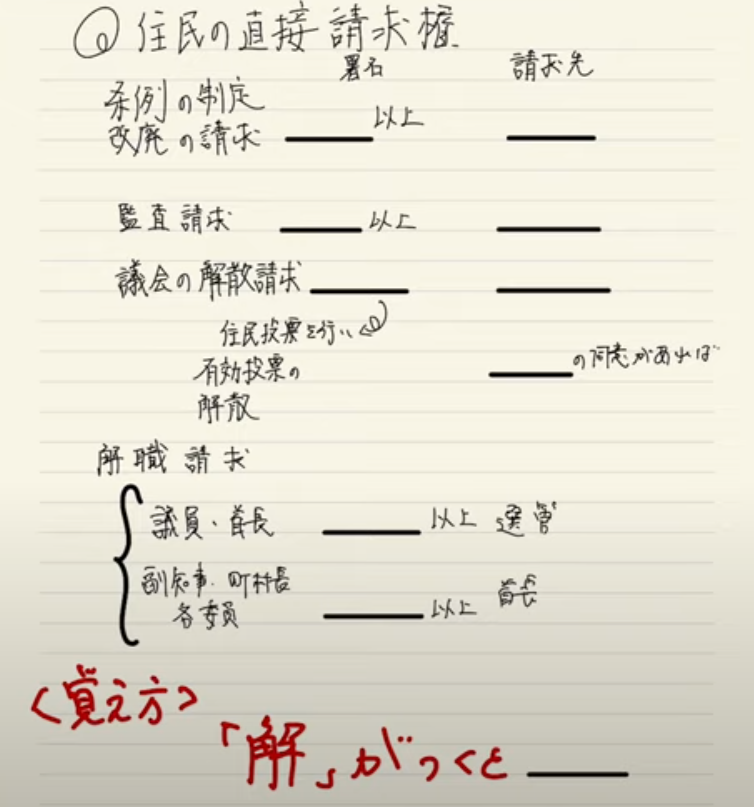 ◎ 住民の直接請求権
署名 請求先
条例の制定
改廃の請求 以上
監査請求 以上
議会の解散請求
住民投票を行い
有効投票の の同意があれば
解散
解職請求
議員・首長 以上 選管
副知事・町村長
各委員 以上 首長
<覚え方>
「解」がつくと